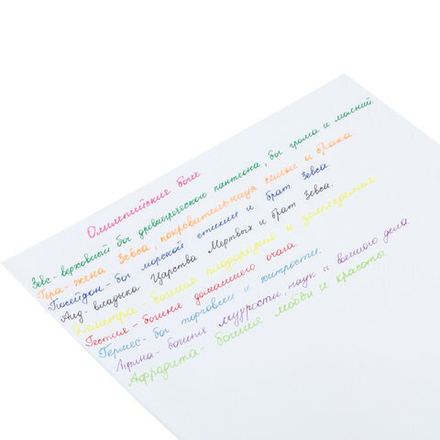 Олимпийские боги
Зевс - верховный бог древнегреческого пантеона, бог грома и молний.
Гера - жена Зевса, покровительница семьи и брака.
Посейдон - бог морской стихии и брат Зевса.
Аид - владыка Царства Мертвых и брат Зевса.
Деметра - богиня плодородия и земледелия
Гестия - богиня домашнего очага.
Гермес - бог торговли и хитрости.
Афина - богиня мудрости, наук и военного дела
Афродита - богиня любви и красоты